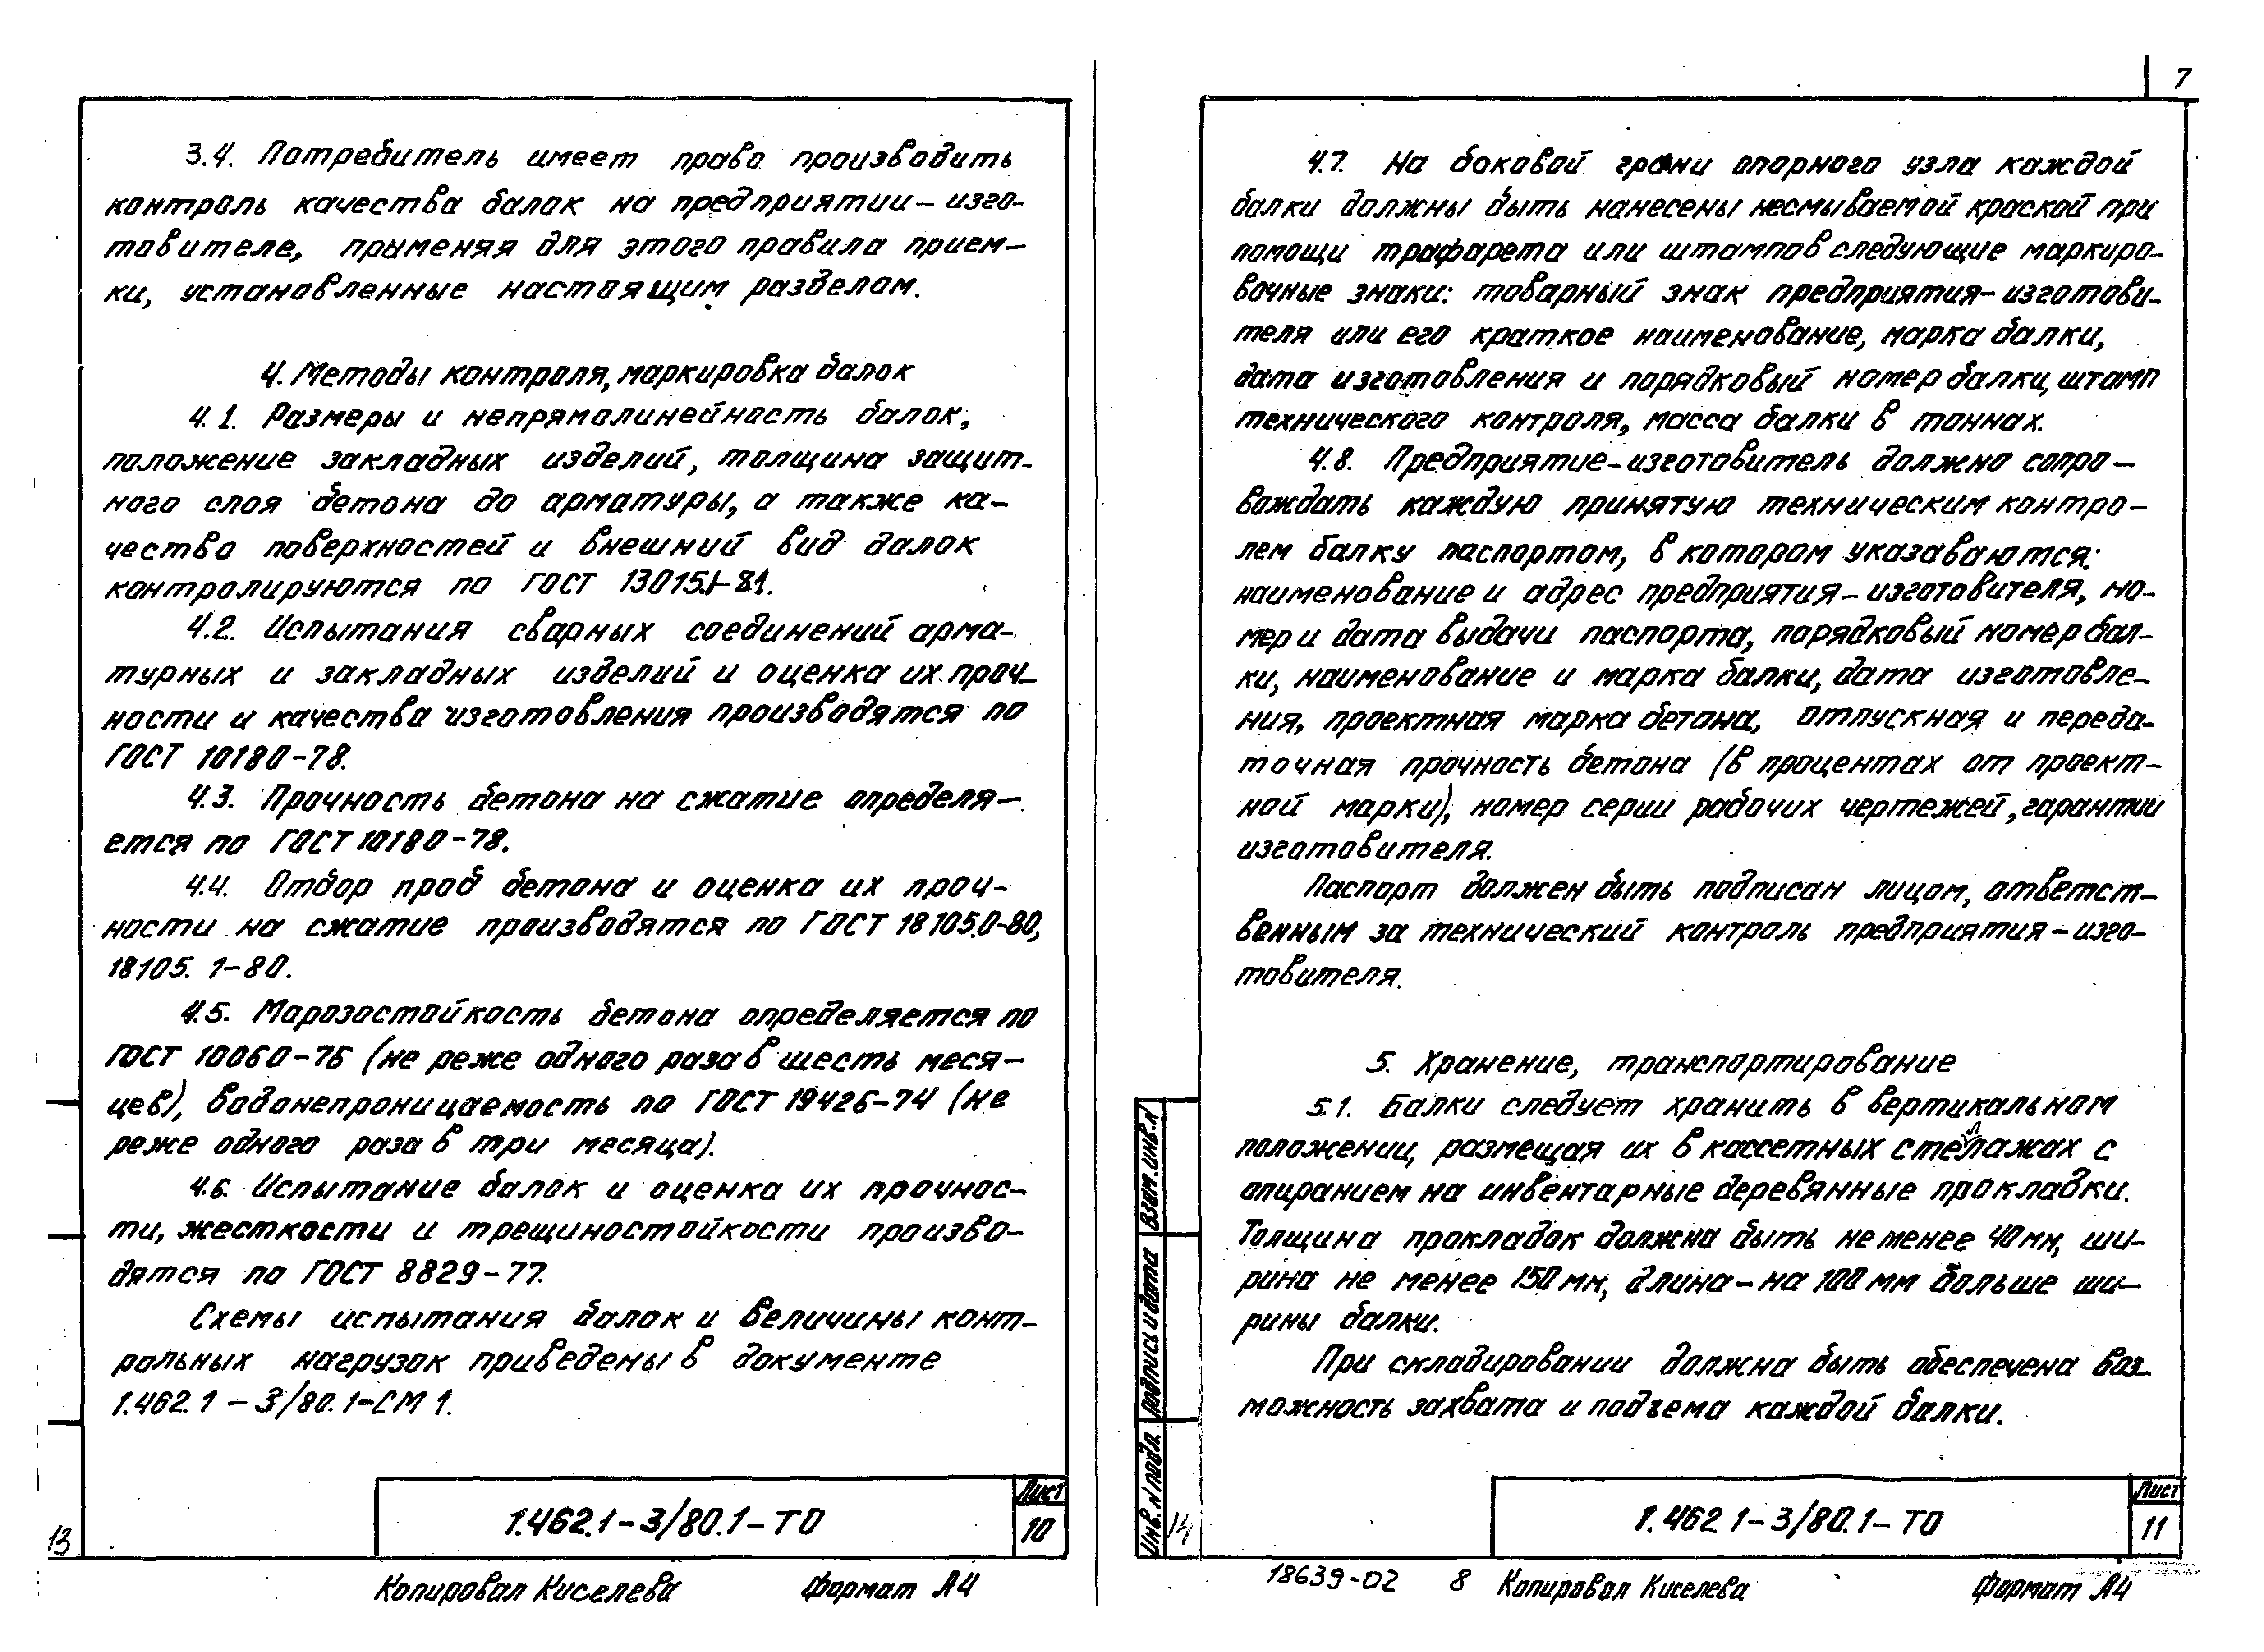 3.4. Потребитель имеет право производить
контроль качества балок на предприятии – изго-
товителе, применяя для этого правила прием-
ки, установленные настоящим разделом.
4. Методы контроля, маркировка балок
4.1. Размеры и непрямолинейность балок,
положение закладных изделий, толщина защит-
ного слоя бетона до арматуры, а также ка-
чество поверхностей и внешний вид балок
контролируются по ГОСТ 13015.1-81.
4.2. Испытания сварных соединений арма-
турных и закладных изделий и оценка их проч-
ности и качества изготовления производятся по
ГОСТ 10180-78.
4.3. Прочность бетона на сжатие определя-
ется по ГОСТ 10180-78.
4.4. Отбор проб бетона и оценка их проч-
ности на сжатие производятся по ГОСТ 18105.0-80,
18105.1-80.
4.5. Морозостойкость бетона определяется по
ГОСТ 10060-76 (не реже одного раза в шесть меся-
цев), водонепроницаемость по ГОСТ 19426-74 (не
реже одного раза в три месяца).
4.6. Испытание балок и оценка их прочнос-
ти, жесткости и трещиностойкости произво-
дятся по ГОСТ 8829-77.
Схемы испытания балок и величины конт-
рольных нагрузок приведены в документе
1.462.1-3/80.1-СМ 1.
1.462.1-3/80.1-ТО
Лист
10
13
Копировал Киселева Формат А4
7
4.7. На боковой грани опорного узла каждой
балки должны быть нанесены несмываемой краской при
помощи трафарета или штампов следующие маркиро-
вочные знаки: товарный знак предприятия-изготови-
теля или его краткое наименование, марка балки,
дата изготовления и порядковый номер балки, штамп
технического контроля, масса балки в тоннах.
4.8. Предприятие-изготовитель должно сопро-
вождать каждую принятую техническим контро-
лем балку паспортом, в котором указываются:
наименование и адрес предприятия-изготовителя, но-
мер и дата выдачи паспорта, порядковый номер бал-
ки, наименование и марка балки, дата изготовле-
ния, проектная марка бетона, отпускная и переда-
точная прочность бетона (в процентах от проект-
ной марки), номер серии рабочих чертежей, гарантии
изготовителя.
Паспорт должен быть подписан лицом, ответст-
венным за технический контроль предприятия-изго-
товителя.
5. Хранение, транспортирование
5.1. Балки следует хранить в вертикальном
положении, размещая их в кассетных стеллажах с
опиранием на инвентарные деревянные прокладки.
Толщина прокладок должна быть не менее 40 мм, ши-
рина не менее 150 мм, длина – на 100 мм больше ши-
рины балки.
При складировании должна быть обеспечена воз-
можность захвата и подъема каждой балки.
Взам. инв. №
Подпись и дата
Инв. № подл.
14
1.462.1-3/80.1-ТО
Лист
11
18639-02 8 Копировал Киселева Формат А4